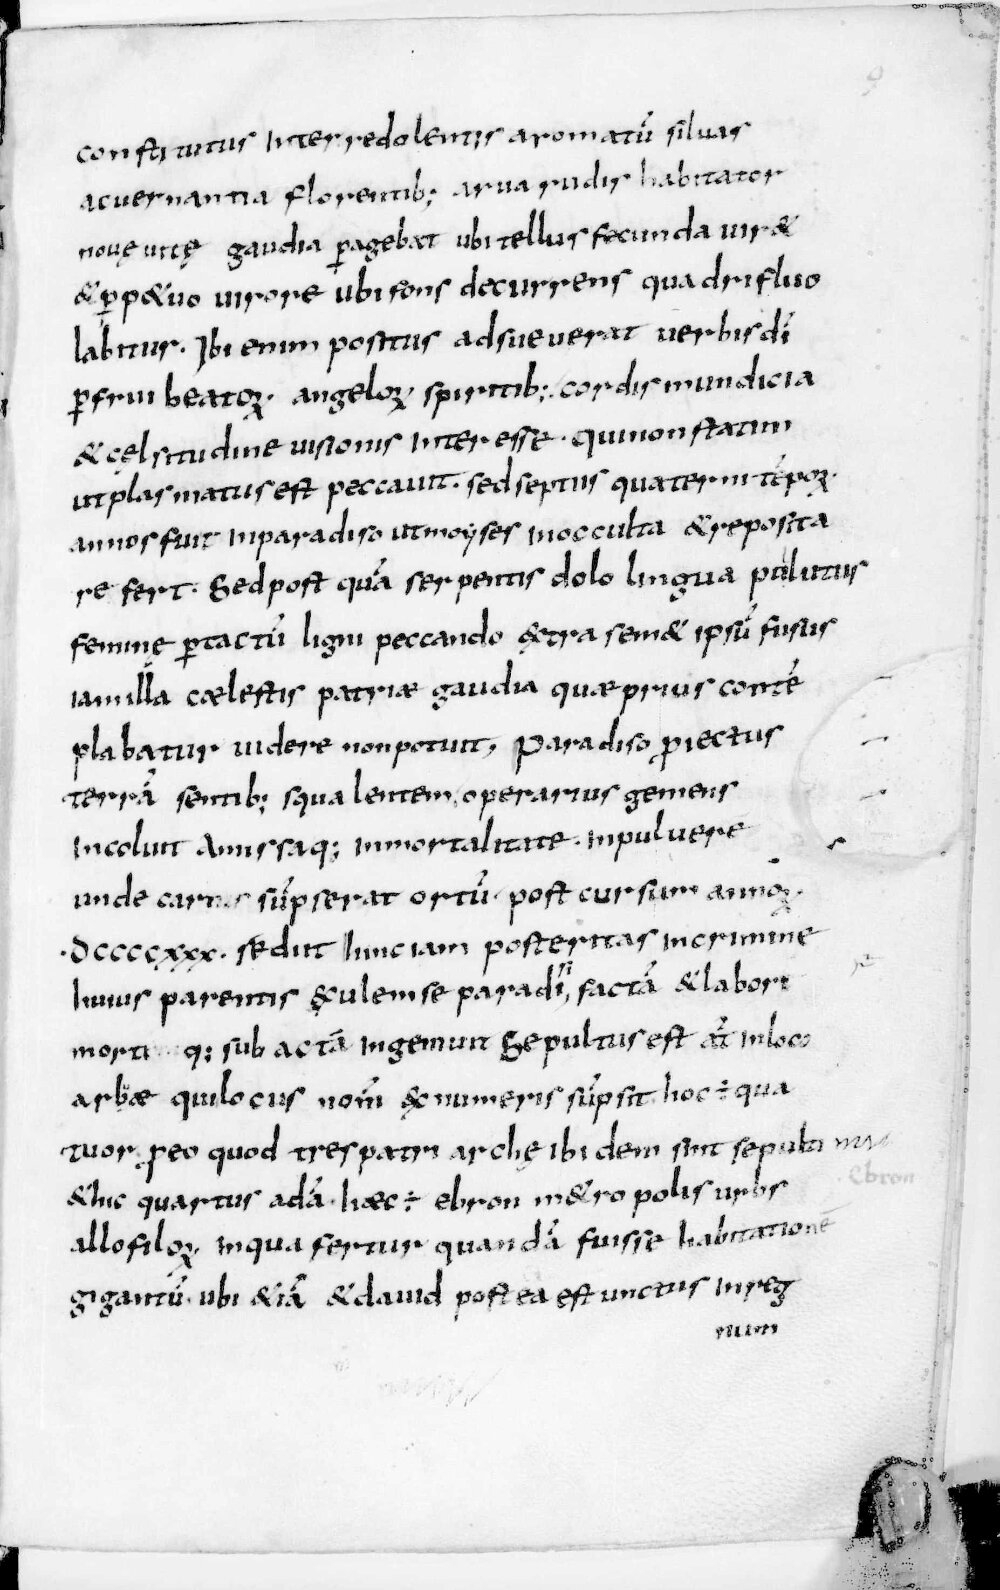 9
constitutus inter redolentis aromatū siluas
ac uernantia florentib; arua rudis habitator
nouę uitę gaudia ꝑagebat ubi tellus fecunda uir&
& ꝑp&uo uirore ubi fons decurrens quadrifluo
labitur. Ibi enim positus adsueuerat uerbis dī
ꝑfrui beatoꝝ. angeloꝝ. spiritib;. cordis mundicia
& cęlsitudine uisionis interesse. Qui non statim
ut plasmatus est peccauit. sed septiis quaterni tēpoꝝ.
annos fuit in paradiso ut moyses in occulta & reposita
refert. Sed post quā serpentis dolo lingua pulutus
feminę ꝑ tactū ligni peccando &tra sem& ipsū fusus
iam illa cælestis patriæ gaudia quæ prius contē
plabatur uidere non potuit, Paradiso ꝓiectus
terrā sentib; squalentem operarius gemens
incoluit Amissaq; inmortalitate. in puluere
unde carnis sūpserat ortū. post cursum annoꝝ.
.dccccxxx. sedut hinc iam posteritas in crimine
huius parentis &ulem se paradisi factā & labori
morti q; subactā ingemuit Sepultus est āt in loco
arbæ qui locus nom̄ & numeris sūpsit. hoc ÷ qua
tuor. ꝓeo quod tres patriarchę ibidem sint sepulti
& hic quartus adā. hæc ÷ ebron m&ropolis urbs
Ebron
allofiloꝝ. in qua fertur quandā fuisse habitationē
gigantū. ubi &iā & dauid postea est unctus in reg
num